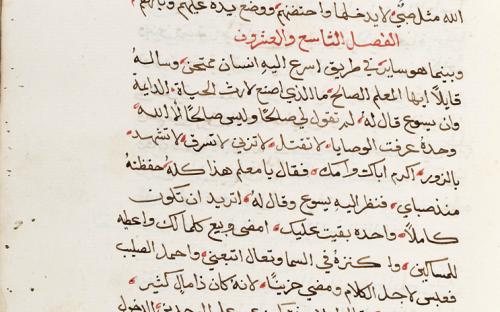 الله مثل صبى لا يدخلها واحتضنهم ووضع يده عليهم وباركهم
الفصل التاسع والعشرون
وبينما هو سايرٌ فى طريق اسرع اليهِ انسان ممتحن وسالهُ
قايلاً ايها المعلم الصالح ما الذى اصنع لارث الحياة الدايمة
وان يسوع قال له لم تقول لي صالحًا وليس صالحًا الا الله
وحدهُ عرفت الوصايا لا تقتل لا تزنى لا تسرق لا تشهد
بالزور اكرم اباك وامك فقال يا معلم هذا كله حفظتهُ
منذ صباي فنظر اليه يسوع وقال لهُ اتريد ان تكون
كاملاً واحده بقيت عليك امضى وبيع كلما لك واعطه
للمساكين واكنزه فى السما وتعال اتبعنى واحمل الصليب
فعبس لاجل الكلام ومضى حزينًا لانه كان ذا مالٍ كثير